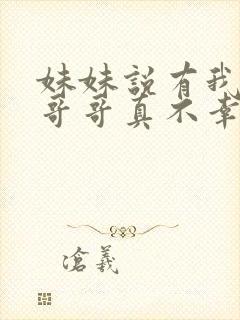 妹妹説有我
哥哥真不幸
滄義